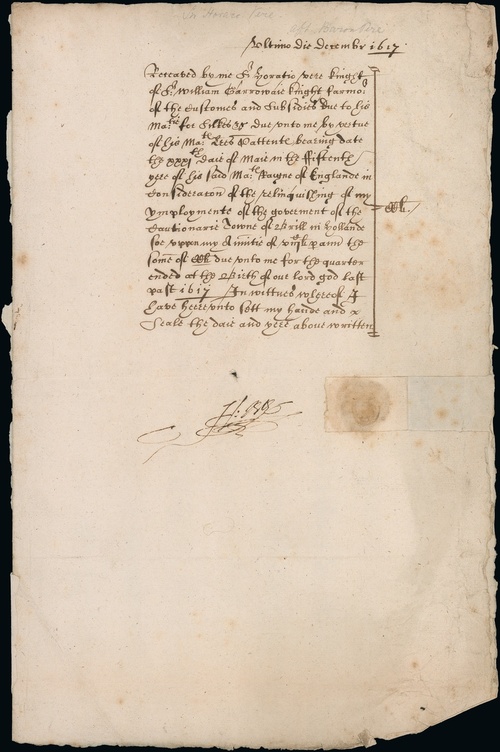 Sr Horace Vere
Ultimo die decembr 1617
Receaved by me Sr Horatio vere knight
of Sr William Garrowaie knight farmor
of the Customes and Subsidies due to his
Matie for Silkes &c due unto me by vertue
of his Mats Lres Pattente bearing date
the xxxith daie of Maie in the fifteenth
yere of his said Mats Raigne of Englande in
Consideracon of the relinquishing of my
Ymploymente of the goverment of the
Cautionarie Towne of Brill in Hollande
soe uppon my Annuitie of p ann the
some of due unto me for the quarter
ended at the Birth of our lord god last
past 1617 In wittnes whereof I
have heereunto sett my hande and
Seale the daie and yere above written